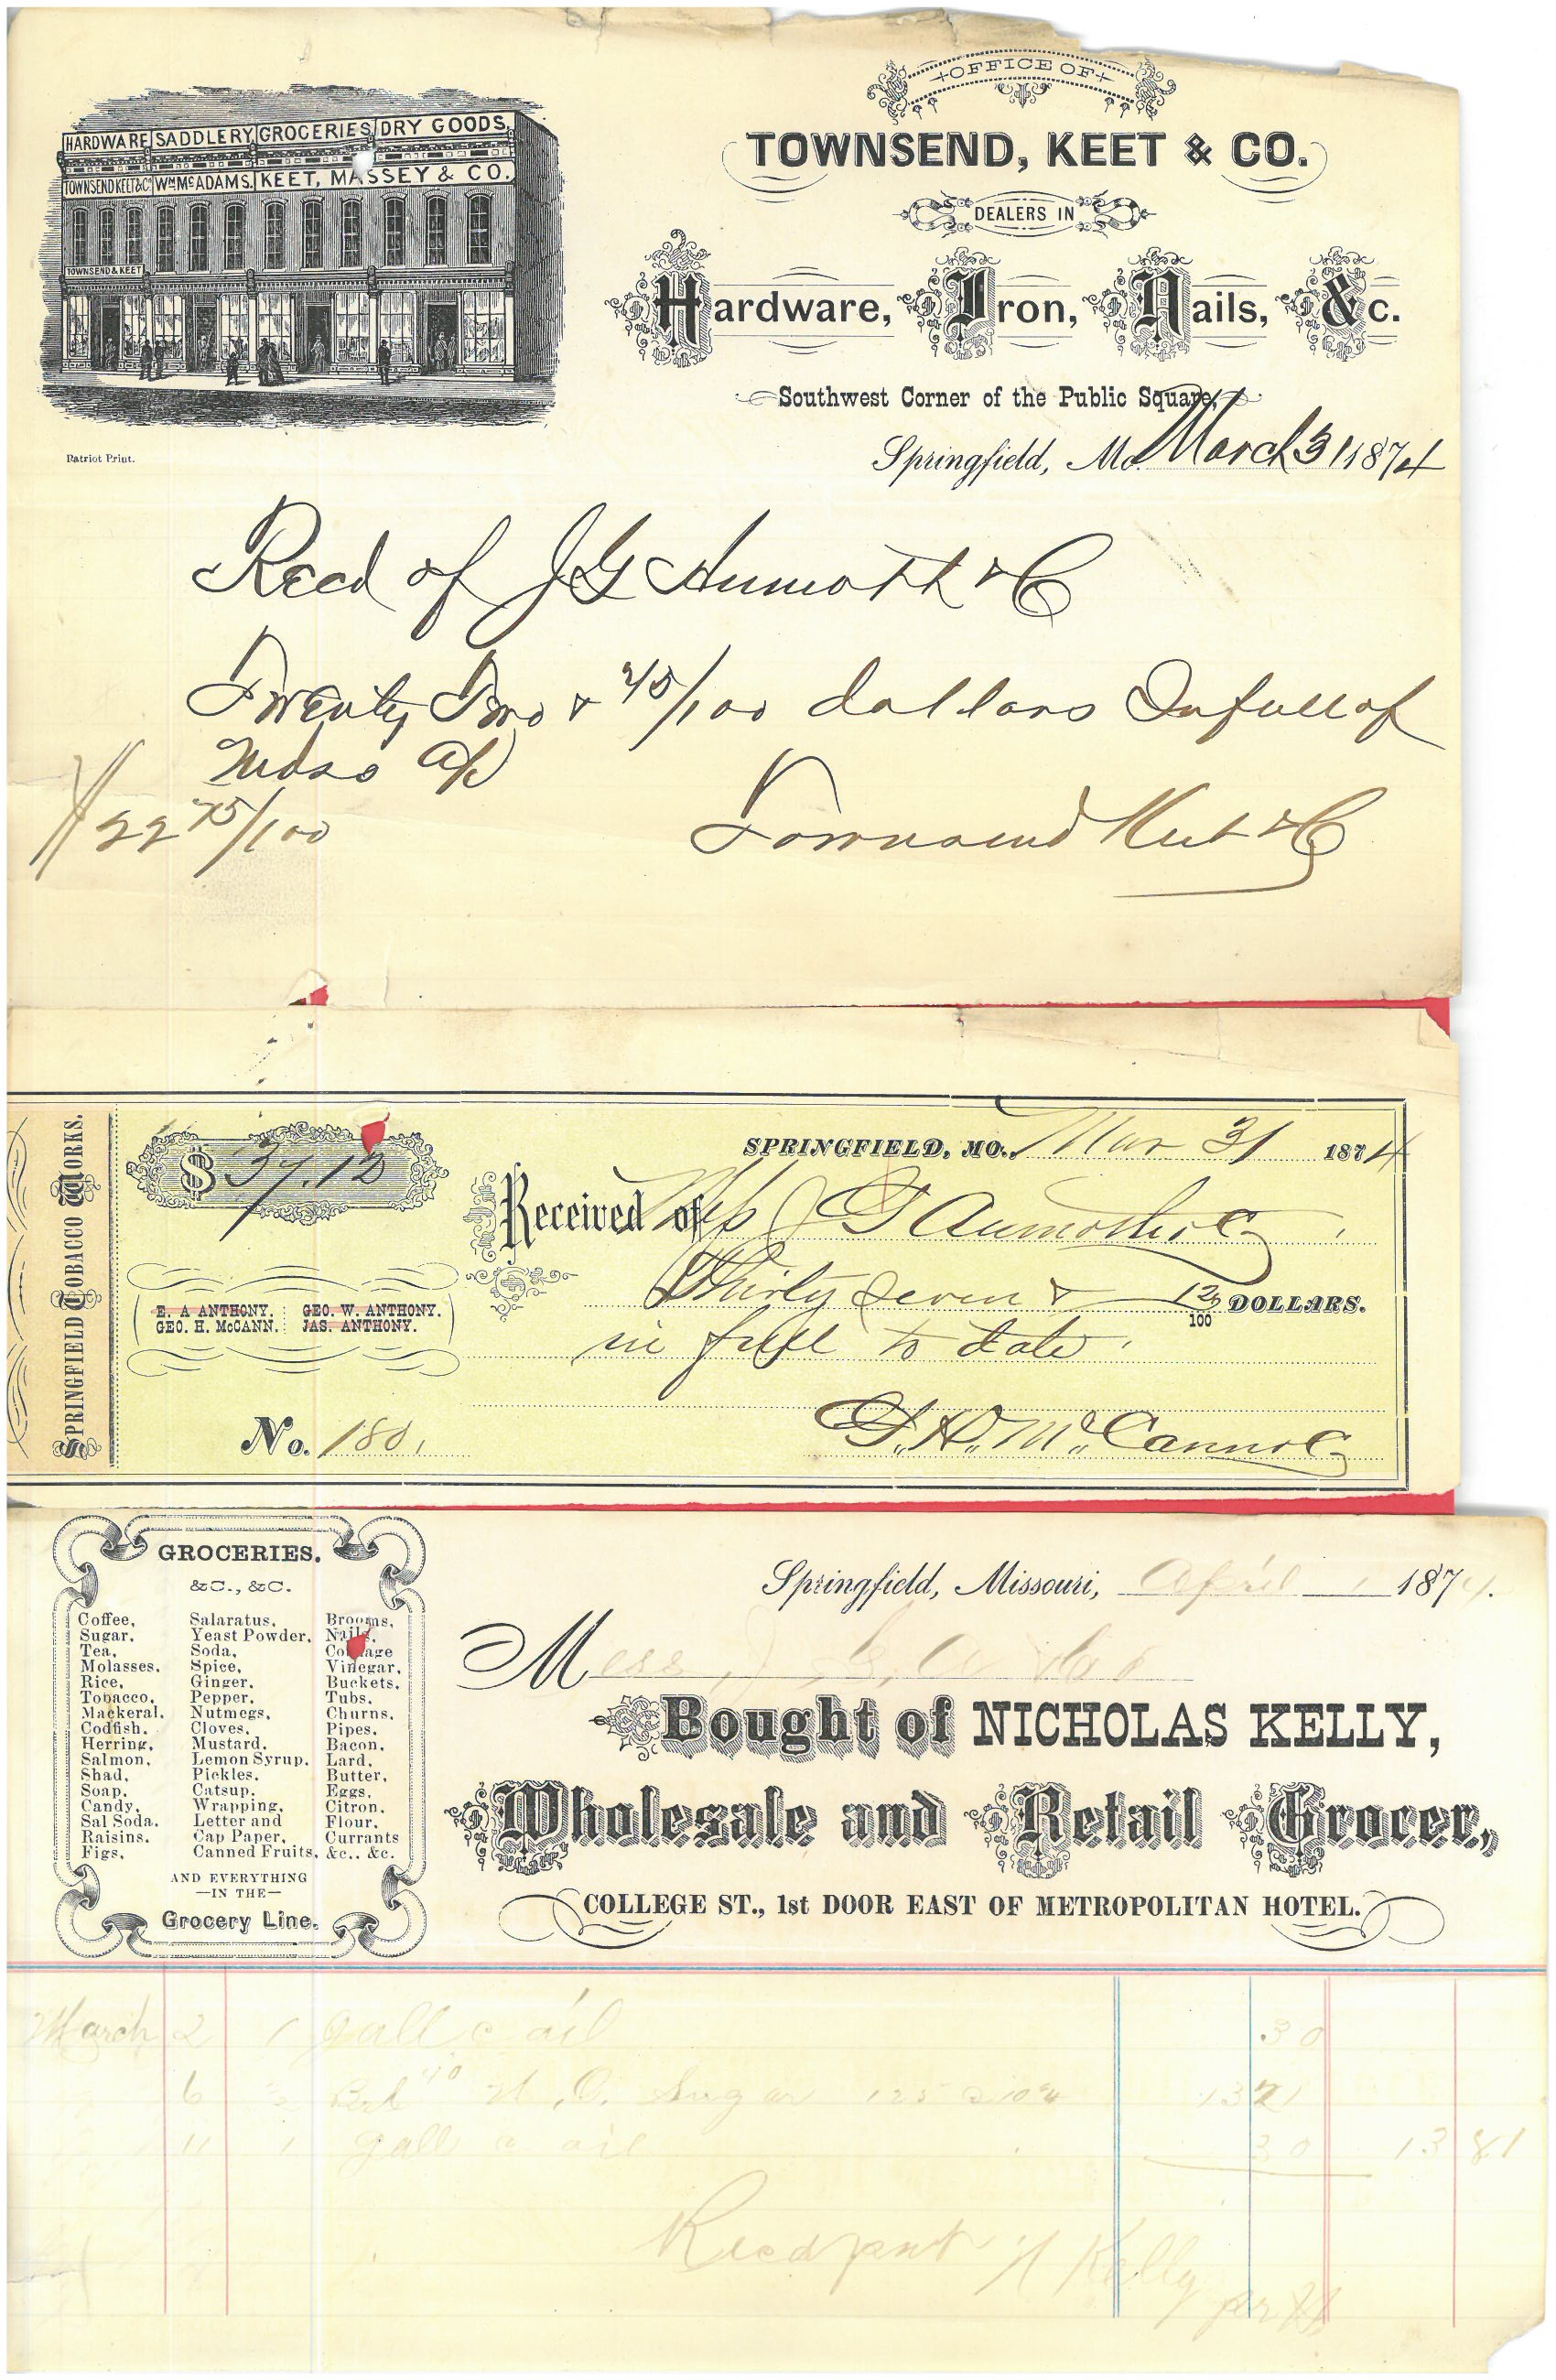 OFFICE OF
TOWNSEND, KEET & CO.
DEALERS IN
Hardware, Iron, Nails, &c.
Southwest Corner of the Public Square,
Springfield, Mo. March 31 1874
HARDWARE SADDLERY GROCERIES DRY GOODS
TOWNSEND KEET & Co. WM McADAMS. KEET, MASSEY & CO.
TOWNSEND & KEET
Patriot Print.
Recd of J G & Co
Twenty Two & 75/100 dollars In full of
a/c
$22 75/100 Townsend Keet & Co
SPRINGFIELD TOBACCO WORKS.
$ 37.12
SPRINGFIELD, MO., Mar 31 1874
Received of Mess J G Aumoth & Co
Thirty Seven & 12/100 DOLLARS.
in full to date
E. A ANTHONY. GEO. W. ANTHONY.
GEO. H. McCANN. JAS. ANTHONY.
No. 180
G. H. McCann & Co
GROCERIES.
&C., &C.
Coffee, Salaratus, Brooms,
Sugar, Yeast Powder, Nails,
Tea, Soda,
Molasses, Spice, Vinegar,
Rice, Ginger, Buckets,
Tobacco, Pepper, Tubs,
Mackeral, Nutmegs, Churns,
Codfish, Cloves, Pipes,
Herring, Mustard, Bacon,
Salmon, Lemon Syrup, Lard,
Shad, Pickles, Butter,
Soap, Catsup, Eggs,
Candy, Wrapping, Citron,
Sal Soda, Letter and Flour,
Raisins, Cap Paper, Currants
Figs, Canned Fruits, &c., &c.
AND EVERYTHING
—IN THE—
Grocery Line.
Springfield, Missouri, April 1 1874.
Mess J. G.
Bought of NICHOLAS KELLY,
Wholesale and Retail Grocer,
COLLEGE ST., 1st DOOR EAST OF METROPOLITAN HOTEL.
March 2 1 Gall c oil 30
6 N. O. Sugar 125 13 21
11 1 gall c oil 30 13 81
Recd payt N Kelly
per